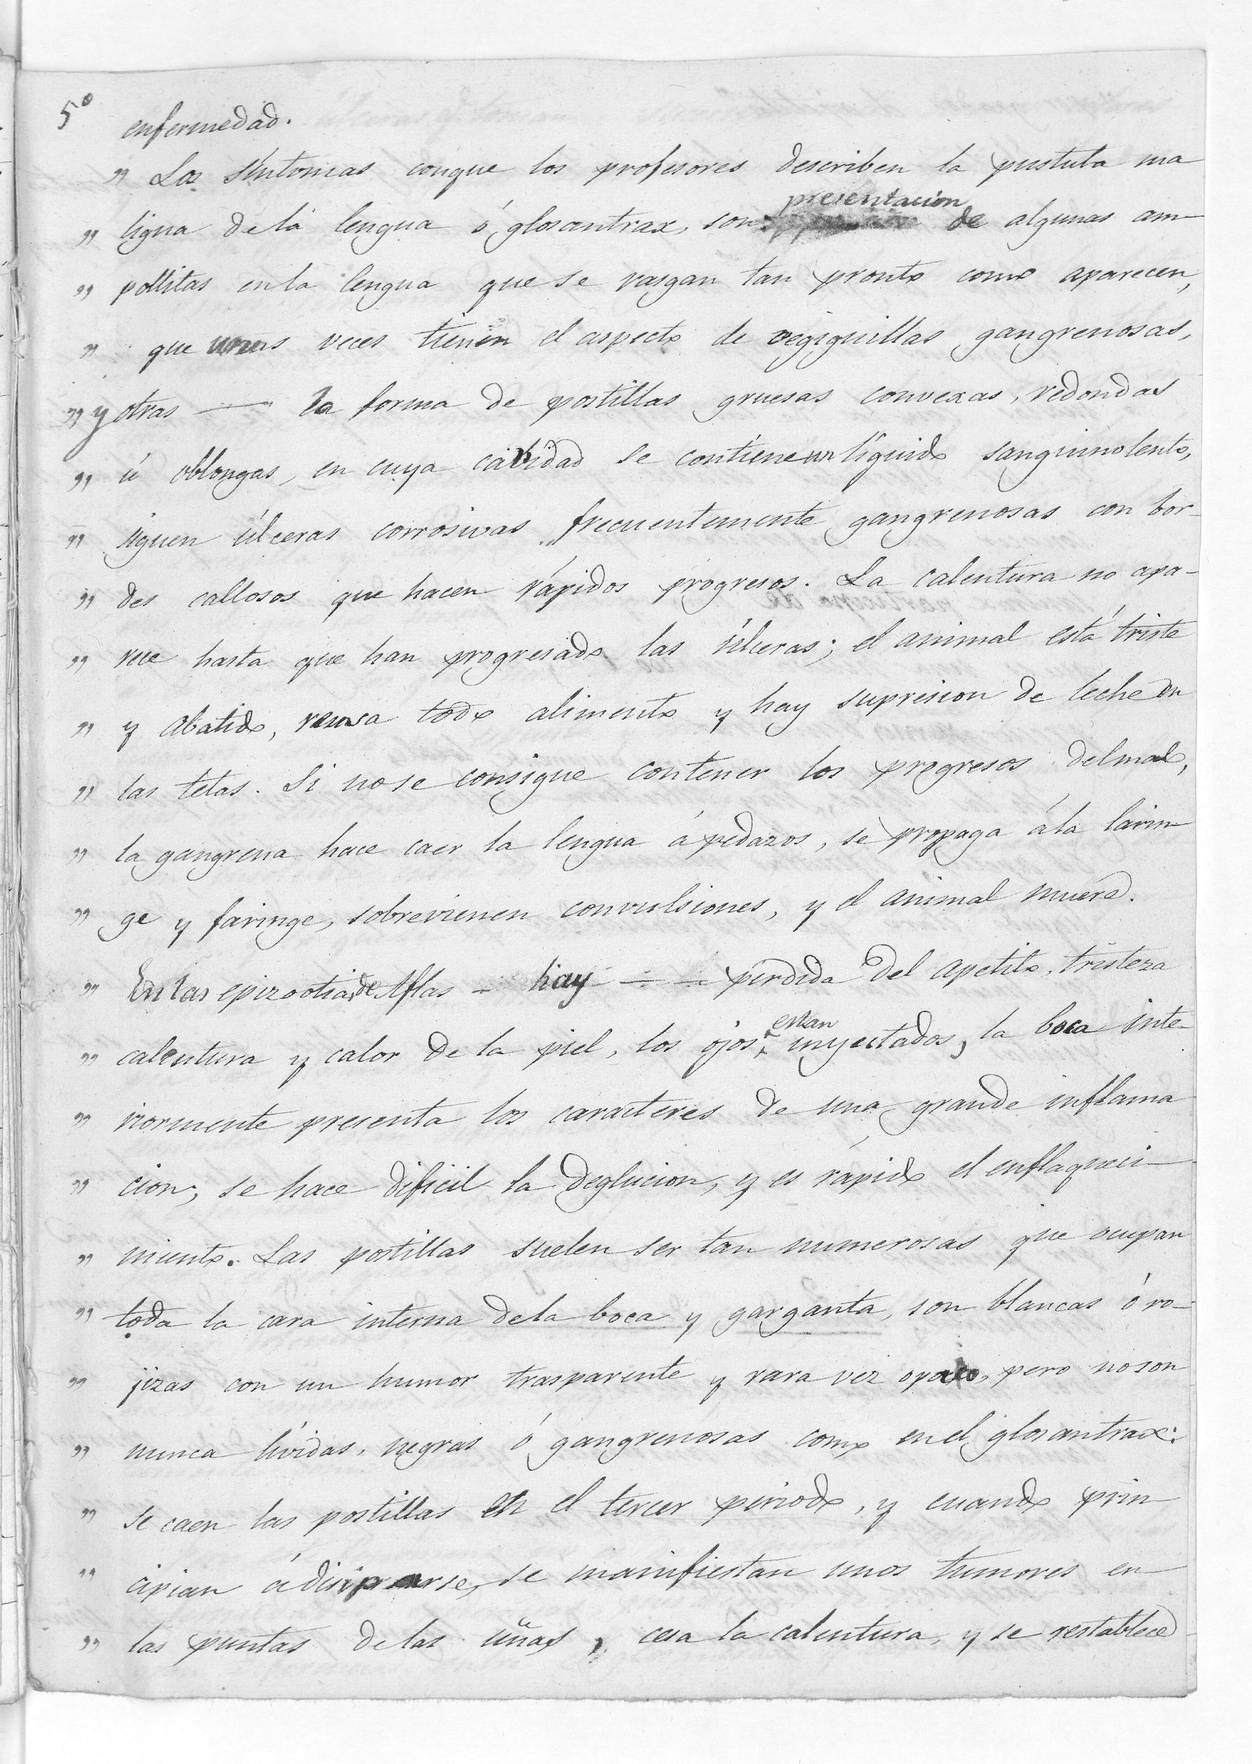 5º
enfermedad.
" Los síntomas conque los profesores describen la pustula ma
presentacion
" ligna dela lengua ó glosantrax, son: de algunas am-
" pollitas en la lengua que se rasgan tan pronto como aparecen,
" que unas veces tienen el aspecto de vegiguillas gangrenosas,
" y otras — la forma de postillas gruesas convexas, redondas
" ú oblongas, en cuya cabidad se contiene un líquido sanguinolento,
" siguen úlceras corrosivas frecuentemente gangrenosas con bor-
" des callosos que hacen rápidos progresos. La calentura no apa-
" rece hasta que han progresado las úlceras; el animal está triste
" y abatido, reusa todo alimento y hay supresion de leche en
" las tetas. Si nose consigue contener los progresos delmal,
" la gangrena hace caer la lengua á pedazos, se propaga ála larin
" ge y faringe, sobrevienen convulsiones, y el animal muere.
" En las epizootias de Aftas - hay - - perdida del apetito, tristeza
estan
" calentura y calor de la piel, los ojos inyectados, la boca inte-
" riormente presenta los caracteres de una grande inflama
" cion, se hace dificil la deglucion, y es rápido el enflaqueci-
" miento. Las postillas suelen ser tan numerosas que ocupan
" toda la cara interna dela boca y garganta, son blancas ó ro-
" jizas con un humor trasparente y rara vez opaco, pero noson
" nunca lívidas, negras ó gangrenosas como enel glosantrax:
" se caen las postillas en el tercer periodo, y cuando prin
" cipian á disiparse, se manifiestan unos tumores en
" las puntas delas uñas, cesa la calentura, y se restablece